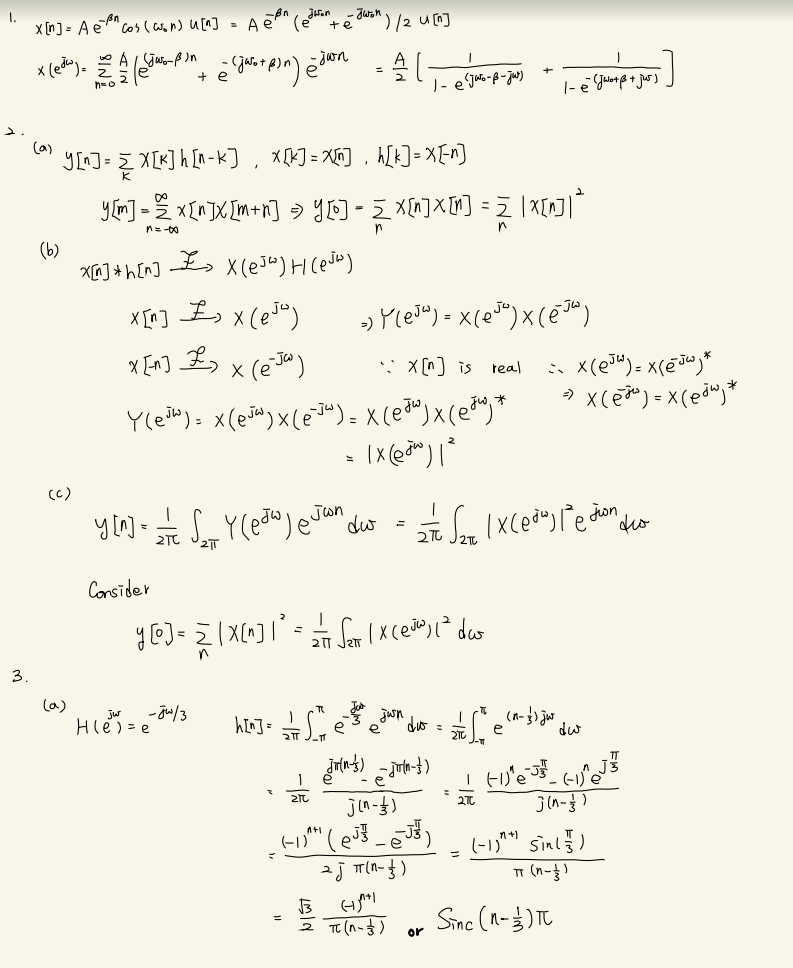 1. x[n] = A e^{-βn} cos(ω₀n) u[n] = A e^{-βn} (e^{jω₀n} + e^{-jω₀n}) / 2 u[n]
X(e^{jω}) = \sum_{n=0}^{∞} \frac{A}{2} (e^{(jω₀-β)n} + e^{-(jω₀+β)n}) e^{-jωn} = \frac{A}{2} [ \frac{1}{1 - e^{(jω₀-β-jω)}} + \frac{1}{1 - e^{-(jω₀+β+jω)}} ]
2.
(a) y[n] = \sum_{k} x[k] h[n-k] , x[k] = x[n] , h[k] = x[-n]
y[m] = \sum_{n=-∞}^{∞} x[n] x[m+n] ⇒ y[0] = \sum_{n} x[n] x[n] = \sum_{n} |x[n]|^2
(b)
x[n] * h[n] \xrightarrow{ℱ} X(e^{jω}) H(e^{jω})
x[n] \xrightarrow{ℱ} X(e^{jω}) ⇒ Y(e^{jω}) = X(e^{jω}) X(e^{-jω})
x[-n] \xrightarrow{ℱ} X(e^{-jω}) ∵ x[n] is real ∴ X(e^{jω}) = X(e^{-jω})^*
⇒ X(e^{-jω}) = X(e^{jω})^*
Y(e^{jω}) = X(e^{jω}) X(e^{-jω}) = X(e^{jω}) X(e^{jω})^*
= |X(e^{jω})|^2
(c)
y[n] = \frac{1}{2π} \int_{2π} Y(e^{jω}) e^{jωn} dω = \frac{1}{2π} \int_{2π} |X(e^{jω})|^2 e^{jωn} dω
Consider
y[0] = \sum_{n} |x[n]|^2 = \frac{1}{2π} \int_{2π} |X(e^{jω})|^2 dω
3.
(a) H(e^{jω}) = e^{-jω/3} h[n] = \frac{1}{2π} \int_{-π}^{π} e^{-\frac{jω}{3}} e^{jωn} dω = \frac{1}{2π} \int_{-π}^{π} e^{(n-\frac{1}{3})jω} dω
= \frac{1}{2π} \frac{e^{jπ(n-\frac{1}{3})} - e^{-jπ(n-\frac{1}{3})}}{j(n-\frac{1}{3})} = \frac{1}{2π} \frac{(-1)^n e^{-j\frac{π}{3}} - (-1)^n e^{j\frac{π}{3}}}{j(n-\frac{1}{3})}
= \frac{(-1)^{n+1} (e^{j\frac{π}{3}} - e^{-j\frac{π}{3}})}{2j π(n-\frac{1}{3})} = \frac{(-1)^{n+1} sin(\frac{π}{3})}{π(n-\frac{1}{3})}
= \frac{√3}{2} \frac{(-1)^{n+1}}{π(n-\frac{1}{3})} or Sinc(n-\frac{1}{3})π